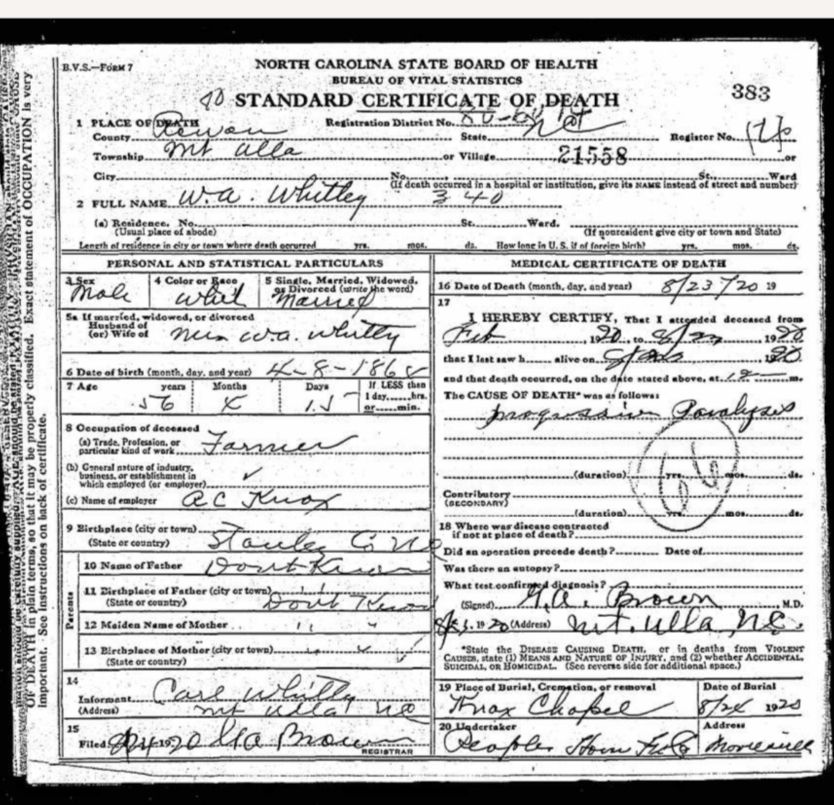 B.V.S.—FORM 7
NORTH CAROLINA STATE BOARD OF HEALTH
BUREAU OF VITAL STATISTICS
STANDARD CERTIFICATE OF DEATH
383
1 PLACE OF DEATH
County Rowan Registration District No. State NC Register No.
Township Mt Ulla or Village 21558 or
City No. St. Ward
(If death occurred in a hospital or institution, give its NAME instead of street and number)
2 FULL NAME W.A. Whitley 340
(a) Residence. No. St. Ward.
(Usual place of abode) (If nonresident give city or town and State)
Length of residence in city or town where death occurred yrs. mos. ds. How long in U. S. if of foreign birth? yrs. mos. ds.
PERSONAL AND STATISTICAL PARTICULARS
3 Sex 4 Color or Race 5 Single, Married, Widowed, or Divorced (write the word)
Male Whit Married
5a If married, widowed, or divorced
Husband of
(or) Wife of W.A. Whitley
6 Date of birth (month, day, and year) 4-8-186
7 Age years Months Days If LESS than
1 day, hrs.
or min.
56 4 15
8 Occupation of deceased
(a) Trade, Profession, or
particular kind of work Farmer
(b) General nature of industry,
business, or establishment in
which employed (or employer) ✓
(c) Name of employer A C Knox
9 Birthplace (city or town)
(State or country) Stanley Co NC
Parents
10 Name of Father Dont Know
11 Birthplace of Father (city or town)
(State or country) Dont Know
12 Maiden Name of Mother " "
13 Birthplace of Mother (city or town)
(State or country)
14
Informant Carl Whitley
(Address) Mt Ulla NC
15
Filed 1920 G A Brown
REGISTRAR
MEDICAL CERTIFICATE OF DEATH
16 Date of Death (month, day, and year) 8/23/20 19
17
I HEREBY CERTIFY, That I attended deceased from
Feb 1920, to 1920
that I last saw h alive on 1920
and that death occurred, on the date stated above, at 12 m.
The CAUSE OF DEATH* was as follows:
progressive Paralysis
(duration) yrs. mos. ds.
66
Contributory
(SECONDARY)
(duration) yrs. mos. ds.
18 Where was disease contracted
if not at place of death?
Did an operation precede death? Date of
Was there an autopsy?
What test confirmed diagnosis?
(Signed) G.A. Brown M.D.
1920 (Address) Mt. Ulla, N.C.
*State the DISEASE CAUSING DEATH, or in deaths from VIOLENT
CAUSES, state (1) MEANS AND NATURE OF INJURY, and (2) whether ACCIDENTAL,
SUICIDAL, OR HOMICIDAL. (See reverse side for additional space.)
19 Place of Burial, Cremation, or removal Date of Burial
Knox Chapel 8/24 1920
20 Undertaker Address
Peoples Mooresville
OF DEATH in plain terms, so that it may be properly classified. Exact statement of OCCUPATION is very
important. See instructions on back of certificate.